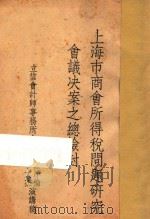 上海市商會所得稅問題研究
會議決案之總檢討
立信會計師事務所
演講稿